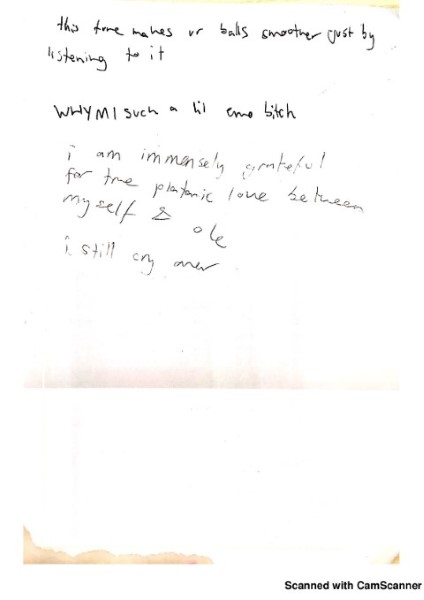 this tune makes ur balls smoother just by
listening to it
WHY M I such a lil emo bitch
i am immensely grateful
for the platonic love between
myself &
ole
i still cry over
Scanned with CamScanner